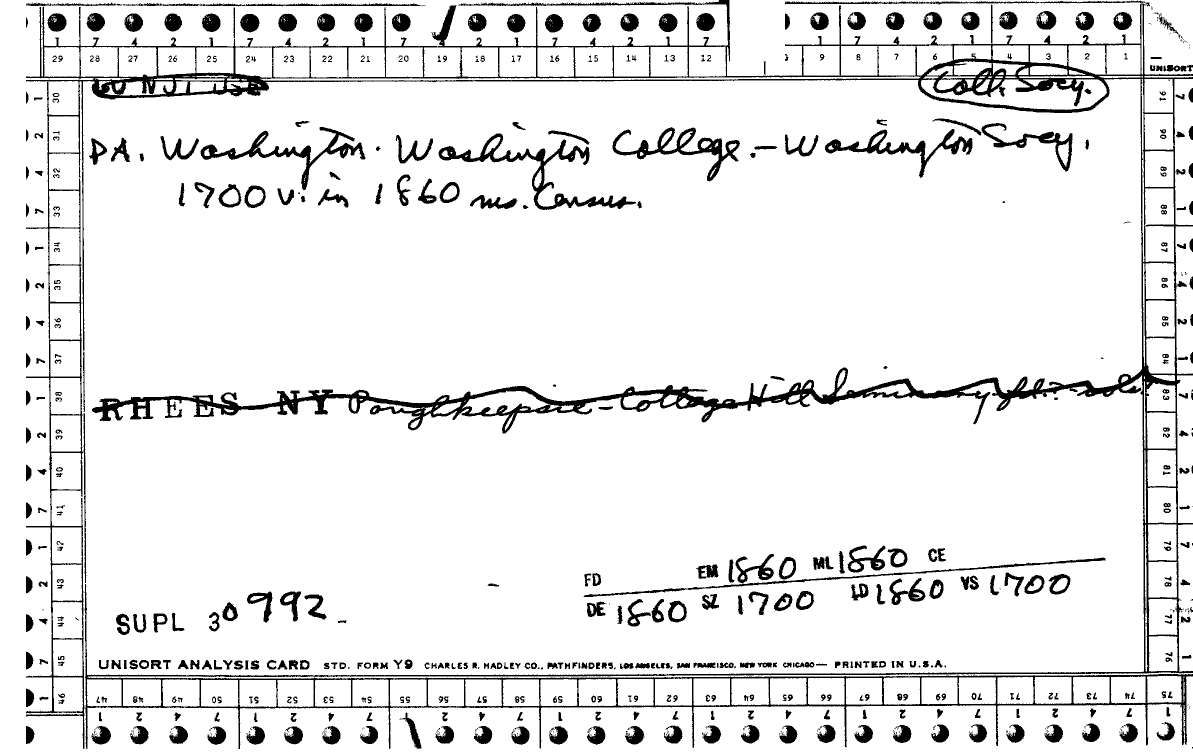 1 7 4 2 1 7 4 2 1 7 4 2 1 7 4 2 1 7 1 7 4 2 1 7 4 2 1
29 28 27 26 25 24 23 22 21 20 19 18 17 16 15 14 13 12 9 8 7 6 5 4 3 2 1
UNISORT
Coll. Socy.
PA. Washington. Washington College.-Washington Socy.
1700 v. in 1860 ms. Census.
RHEES NY Poughkeepsie - Cottage Hill Seminary
FD EM 1860 ML 1860 CE
DE 1860 SZ 1700 LD 1860 VS 1700
SUPL 30992
UNISORT ANALYSIS CARD STD. FORM Y9 CHARLES R. HADLEY CO., PATHFINDERS, LOS ANGELES, SAN FRANCISCO, NEW YORK CHICAGO — PRINTED IN U.S.A.
47 48 49 50 51 52 53 54 55 56 57 58 59 60 61 62 63 64 65 66 67 68 69 70 71 72 73 74 75
1 2 4 7 1 2 4 7 1 2 4 7 1 2 4 7 1 2 4 7 1 2 4 7 1 2 4 7 1